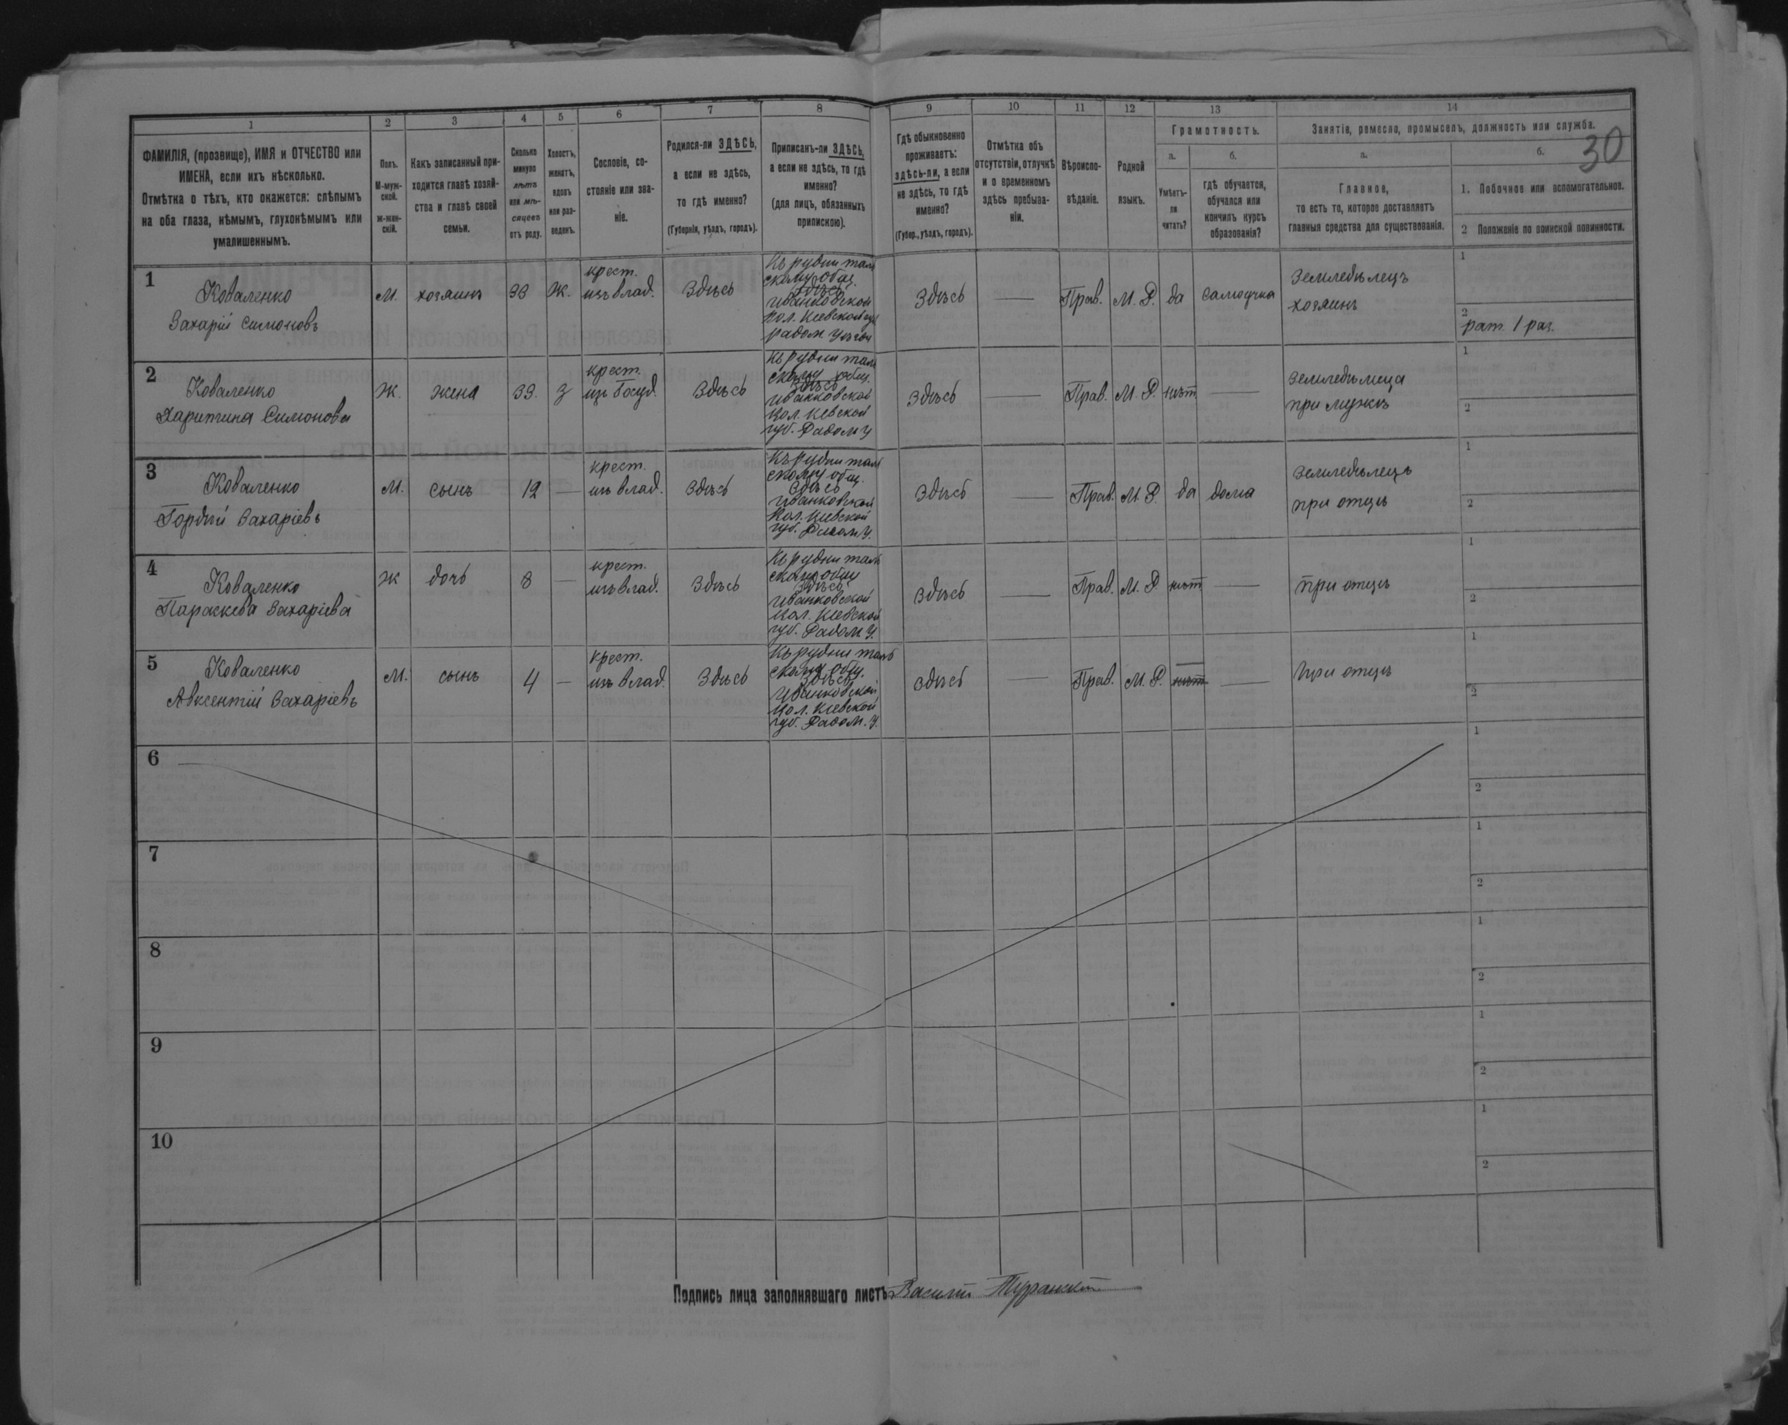 30
1 2 3 4 5 6 7 8 9 10 11 12 13 14
ФАМИЛІЯ, (прозвище), ИМЯ и ОТЧЕСТВО или
ИМЕНА, если ихъ нѣсколько.
Отмѣтка о тѣхъ, кто окажется: слѣпымъ
на оба глаза, нѣмымъ, глухонѣмымъ или
умалишеннымъ.
Полъ.
М-муж-
ской.
Ж-жен-
скій.
Какъ записанный при-
ходится главѣ хозяй-
ства и главѣ своей
семьи.
Сколько
минуло
лѣтъ
или мѣ-
сяцевъ
отъ роду.
Холостъ,
женатъ,
вдовъ
или раз-
веденъ.
Сословіе, со-
стояніе или зва-
ніе.
Родился-ли ЗДѢСЬ,
а если не здѣсь,
то гдѣ именно?
(Губернія, уѣздъ, городъ).
Приписанъ-ли ЗДѢСЬ,
а если не здѣсь, то гдѣ
именно?
(для лицъ, обязанныхъ
припискою).
Гдѣ обыкновенно
проживаетъ:
здѣсь-ли, а если
не здѣсь, то гдѣ
именно?
(Губер., уѣздъ, городъ).
Отмѣтка объ
отсутствіи, отлучкѣ
и о временномъ
здѣсь пребыва-
ніи.
Вѣроиспо-
вѣданіе.
Родной
языкъ.
Грамотность.
а.
Умѣетъ-
ли
читать?
б.
гдѣ обучается,
обучался или
кончилъ курсъ
образованія?
Занятіе, ремесло, промыселъ, должность или служба.
а.
Главное,
то есть то, которое доставляетъ
главныя средства для существованія.
б.
1. Побочное или вспомогательное.
2 Положеніе по воинской повинности.
1
Коваленко
Захарій Симоновъ
М.
хозяинъ
33
Ж.
крест.
изъ влад.
Здѣсь
Къ рудни таль
скому общ.
здѣсь
Иванковской
вол. Кіевской губ
Радом. уѣзда
Здѣсь
—
Прав.
М. Р.
да
самоучка
Земледѣлецъ
хозяинъ
1
2
рат. 1 раз.
2
Коваленко
Харитина Симонова
Ж.
жена
33.
з
крест.
изъ госуд.
Здѣсь
Къ рудни таль
скому общ.
здѣсь
Иванковской
вол. Кіевской
губ. Радом у
Здѣсь
—
Прав.
М. Р.
нѣт
—
Земледѣлица
при мужѣ
1
2
3
Коваленко
Гордій Захаріевъ
М.
сынъ
12
—
крест.
изъ влад.
Здѣсь
Къ рудни таль
скому общ.
Здѣсь
Иванковской
вол. Кіевской
губ. Радом у.
Здѣсь
—
Прав.
М. Р.
да
дома
Земледѣлецъ
при отцѣ
1
2
4
Коваленко
Параскева Захаріева
Ж
дочь
8
—
крест.
изъ влад.
Здѣсь
Къ рудни таль
скому общ
здѣсь
Иванковской
вол. Кіевской
губ. Радом у.
Здѣсь
—
Прав.
М. Р.
нѣт
—
при отцѣ
1
2
5
Коваленко
Авксентій Захаріевъ
М.
сынъ
4
—
крест.
изъ влад.
Здѣсь
Къ рудни таль
скому общ.
здѣсь
Иванковской
вол. Кіевской
губ. Радом. у.
Здѣсь
—
Прав.
М. Р.
нѣт
—
При отцѣ
1
2
6
1
2
7
1
2
8
1
2
9
1
2
10
1
2
Подпись лица заполнявшаго листъ Василій